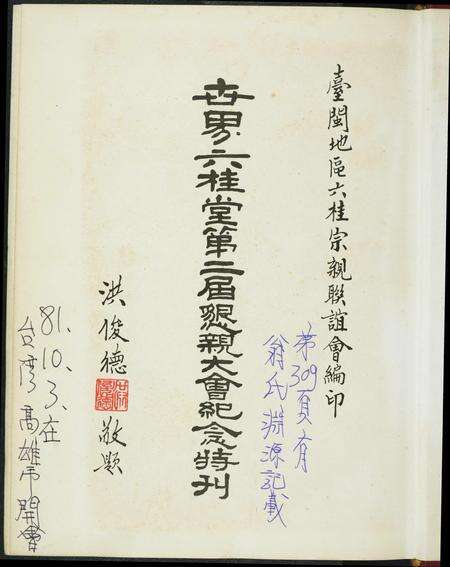 臺閩地區六桂宗親聯誼會編印
第309頁有
翁氏淵源記載
世界六桂堂第二屆懇親大會紀念特刊
洪俊德
敬題
81.10.3.在
台湾高雄市開會